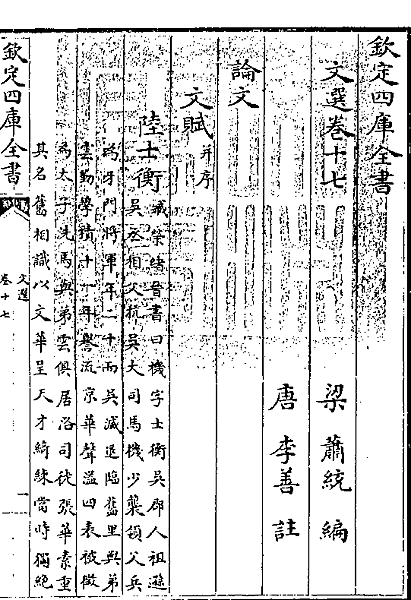 欽定四庫全書
文選卷十七
梁 蕭統 編
唐 李善 註
論文
文賦并序
陸士衡
臧榮緒晉書曰機字士衡吳郡人祖遜
吳丞相父抗吳大司馬機少襲領父兵
為牙門將軍年二十而吳滅退臨舊里與弟
雲勤學積十一年譽流京華聲溢四表被徵
為太子洗馬與弟雲俱居洛司徒張華素重
其名舊相識以文華呈天才綺練當時獨絕
欽定四庫全書
文選
卷十七
一